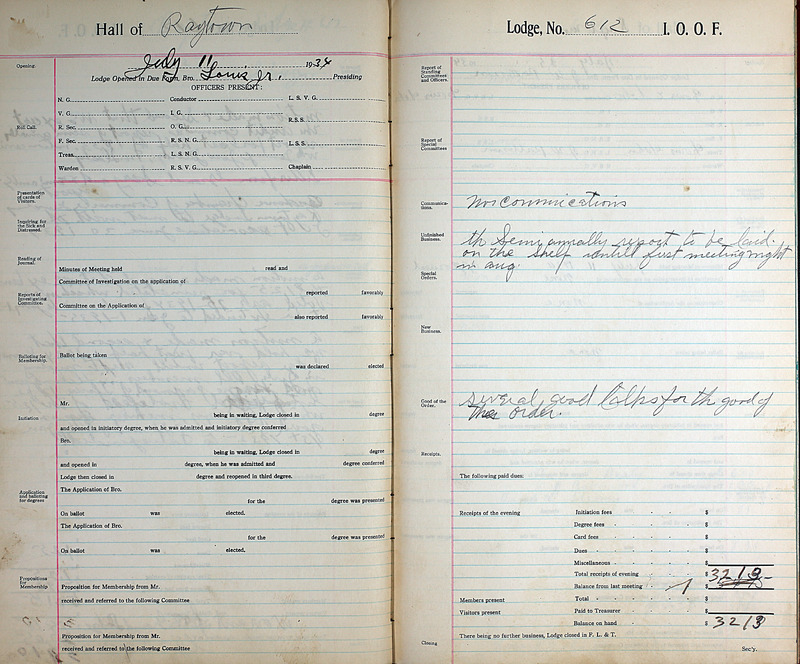 Hall of Raytown
Opening.
July 11 1934
Lodge Opened in Due Form. Bro. Louis Jr. Presiding
OFFICERS PRESENT:
N. G. Conductor L. S. V. G.
V. G. I. G. R.S.S.
Roll Call.
R. Sec. O. G.
F. Sec. R. S. N. G. L.S.S.
Treas. L. S. N. G.
Warden R. S. V. G. Chaplain
Presentation of cards of Visitors.
Inquiring for the Sick and Distressed.
Reading of Journal.
Minutes of Meeting held read and
Committee of Investigation on the application of
Reports of Investigating Committee.
reported favorably
Committee on the Application of
also reported favorably
Balloting for Membership.
Ballot being taken
was declared elected
Mr.
being in waiting, Lodge closed in degree
Initiation
and opened in initiatory degree, when he was admitted and initiatory degree conferred
Bro.
being in waiting, Lodge closed in degree
and opened in degree, when he was admitted and degree conferred
Lodge then closed in degree and reopened in third degree.
Application and balloting for degrees
The Application of Bro.
for the degree was presented
On ballot was elected.
The Application of Bro.
for the degree was presented
On ballot was elected.
Propositions for Membership
Proposition for Membership from Mr.
received and referred to the following Committee
Proposition for Membership from Mr.
received and referred to the following Committee
Lodge, No. 612 I. O. O. F.
Report of Standing Committees and Officers.
Report of Special Committees
Communications.
Unfinished Business.
th Semi annually report to be laid.
on the shelf untill first meeting night
in aug.
Special Orders.
New Business.
Good of the Order.
several good talks for th good of
order.
Receipts.
The following paid dues:
Receipts of the evening Initiation fees $
Degree fees $
Card fees $
Dues $
Miscellaneous $
Total receipts of evening $ 3213
Balance from last meeting $
Members present Total $
Visitors present Paid to Treasurer $
Balance on hand $ 3213
Closing There being no further business, Lodge closed in F. L. & T.
Sec'y.